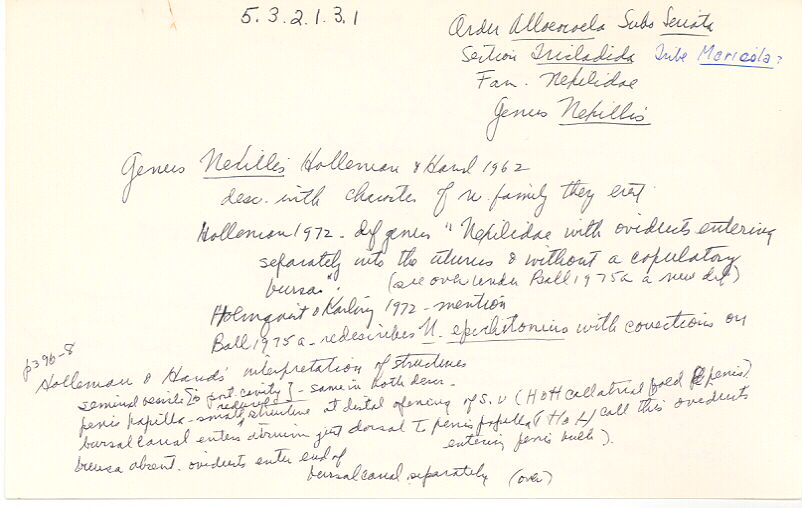 5.3.2.1.3.1
Order Alloeocoela Subo Seriata
Section Tricladida Tribe Maricola?
Fam. Nexilidae
Genus Nexillis
Genus Nexillis Holleman & Hand 1962
desc. with characters of n. family they erect
Holleman 1972 - def genus "Nexilidae with oviducts entering
separately into the uterus & without a copulatory
bursa". (see over under Ball 1975a a new def)
Holmquist & Karling 1972 - mention
Ball 1975a - redescribes N. epichitonius with corrections on
p396-8
Holleman & Hand's interpretation of structures
seminal vesicle [ cavity] - same in both descr -
penis papilla - small reduced structure at distal opening of S.V (H & H call lateral fold penis)
bursal canal enters atrium just dorsal to penis papilla (H & H call this oviducts
entering penis bulb).
bursa absent. oviducts enter end of
bursal canal separately (over)